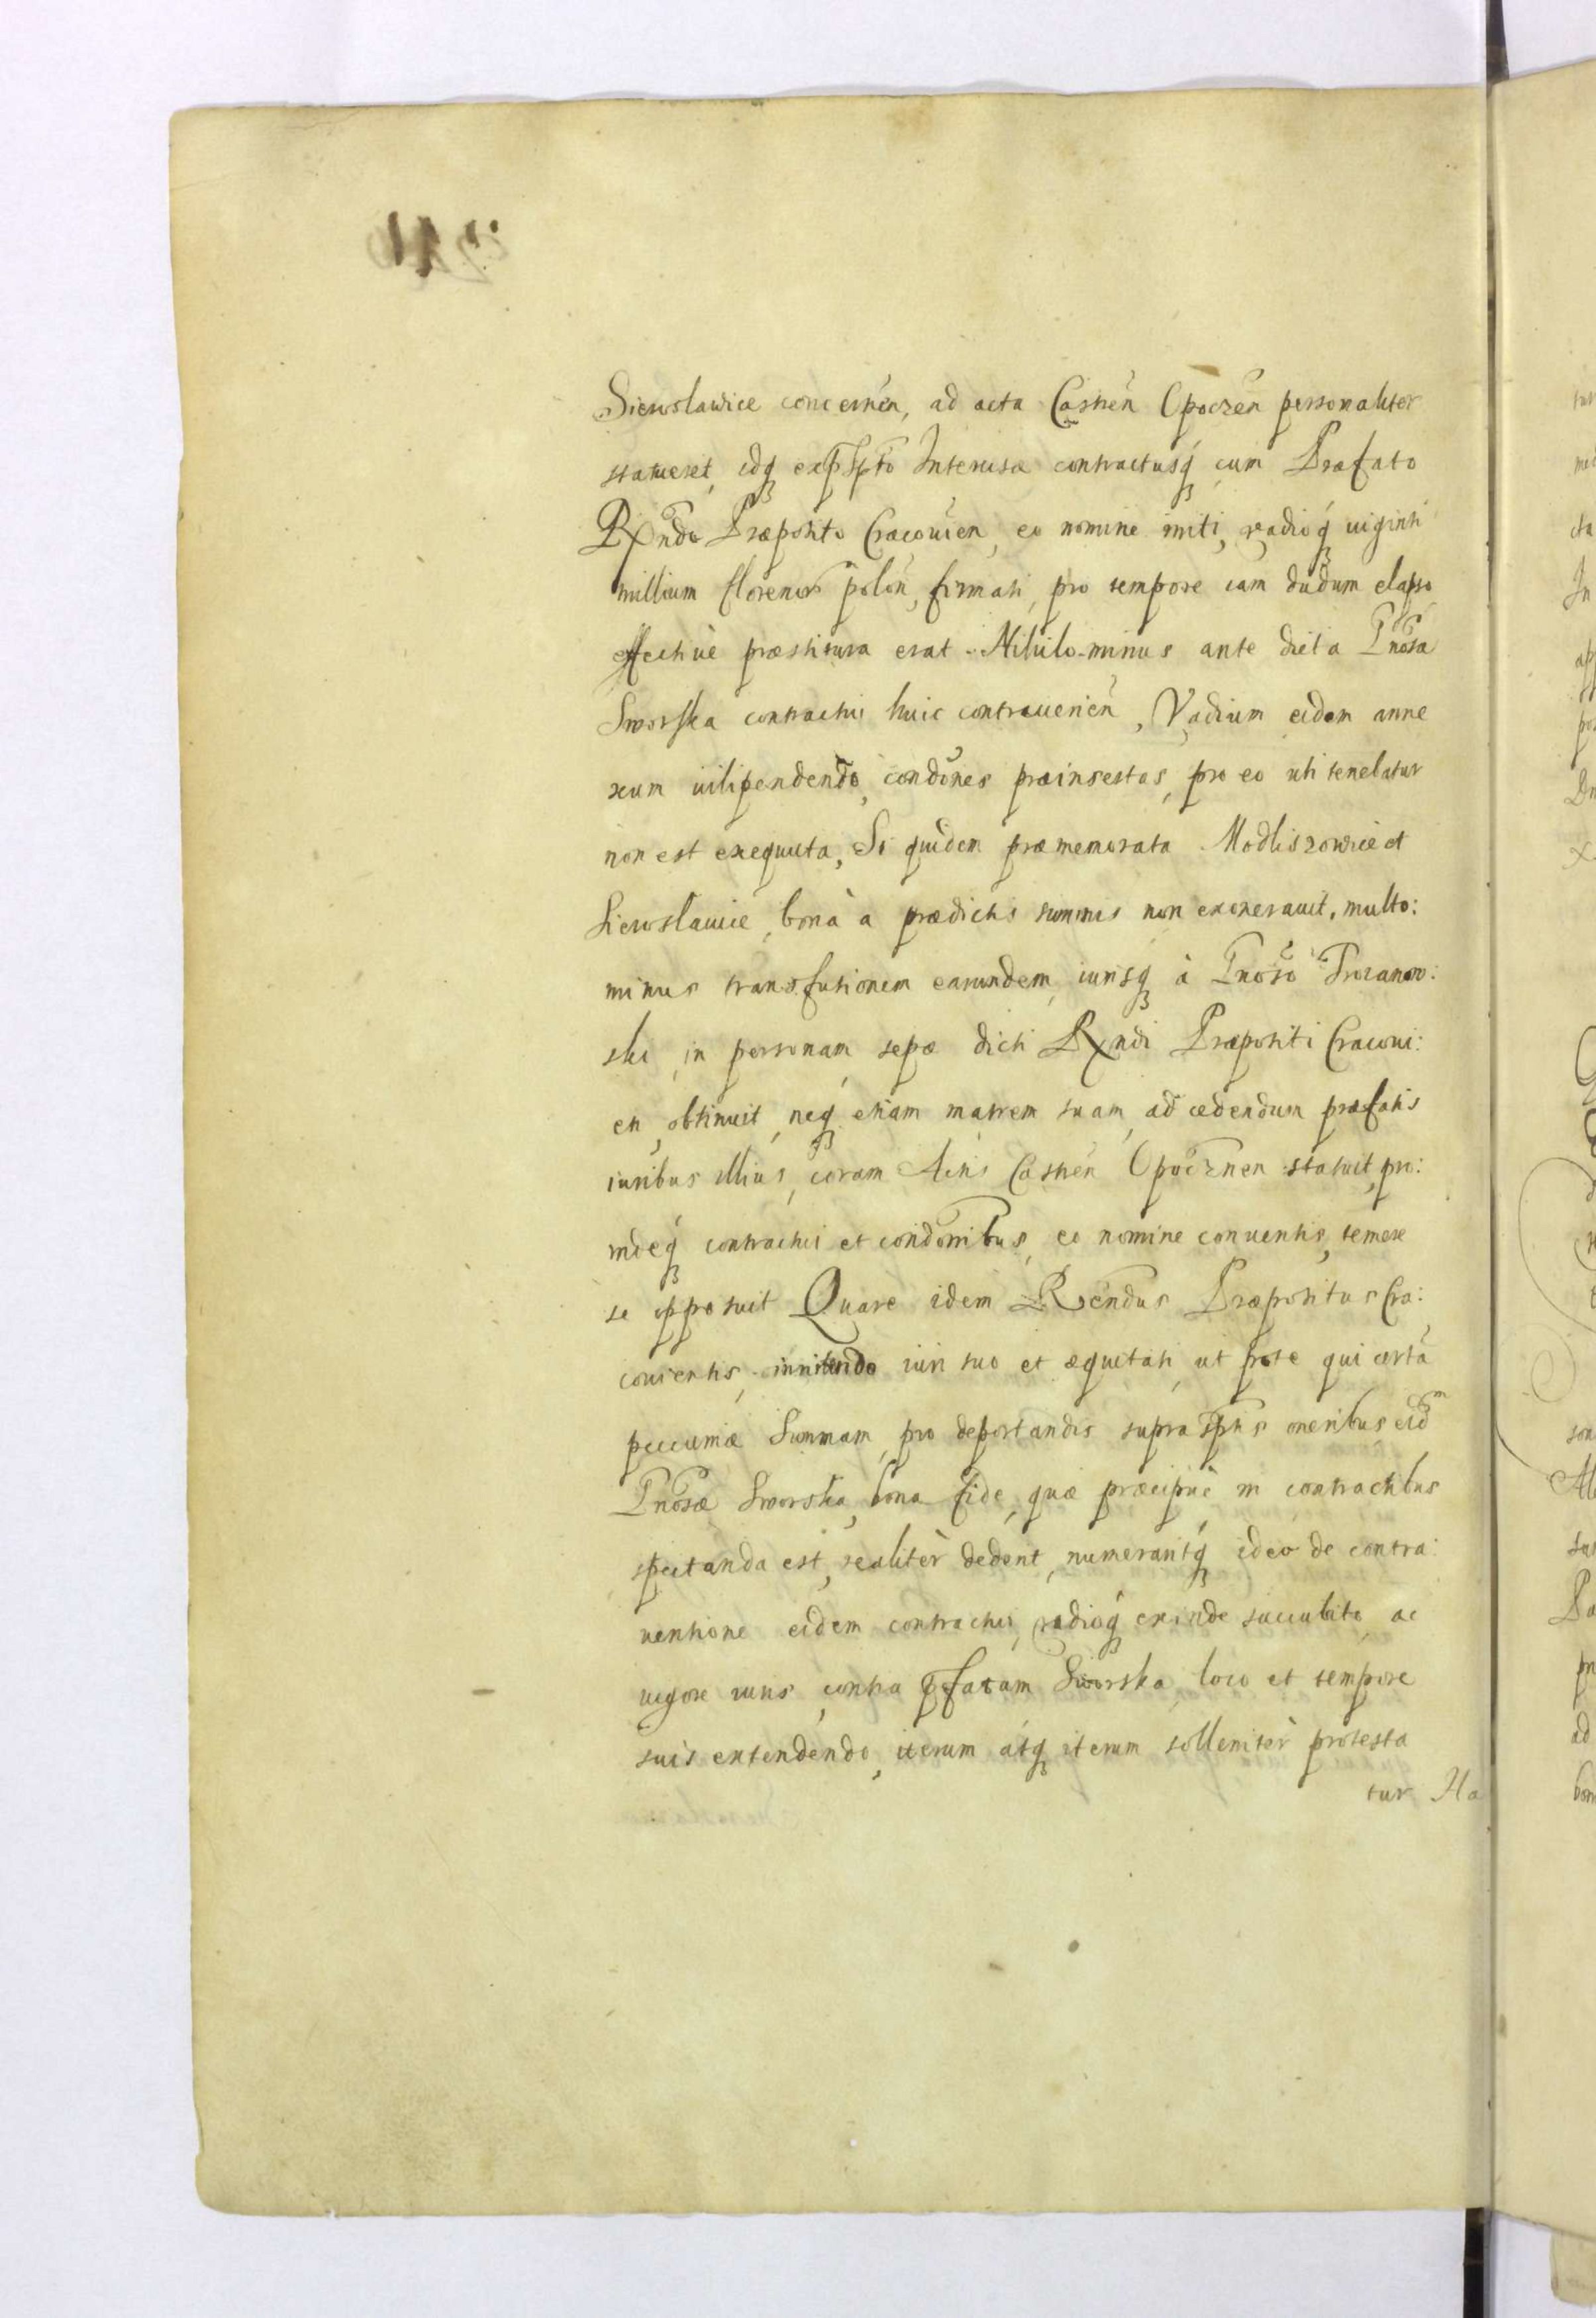 Sierosławice concernén, ad acta Castrén Opoczén personaliter
statueret, idq́ Intercisæ contractusq́ cum Præfato
Rx̃ndo Præposito Cracouién, eo nomine initi, vadioq́ uiginti
millium florenor polón, firmati, pro tempore iam dudum elapso
effectiuè præstitura erat. Nihilo-minus ante dicta Gnõsa
Sworska contractui huic contrauenién, Vadium eidem anne
xum uilipendendo, condõnes præinsertas, pro eo uti tenebatur
non est exequuta, Si quidem præmemorata Modliszowice et
Sierosławice, bona à prædictis summis non exonerauit, multo:
minus transfusionem earundem, iurisq́ à Gnõso
ski, in personam sepæ dicti Rx̃ndi Præpositi Cracoui:
en, obtinuit, neq́ etiam matrem suam, ad cedendum præfatis
iuribus illius, coram Actis Castrén Opocznen statuit, pro:
indeq́ contractui et condõnibus, eo nomine conuentis, temere
se opposuit Quare idem Rx̃endus Præpositus Cra:
couiensis, innitendo iuri suo et æquitati, ut pote qui certã
pecuniæ Summam, pro deportandis supra sptis oneribus eid̃m
Gnõsæ Sworska, bona fide, quæ præcipuè in contractibus
spectanda est, realitèr dederit, numeraritq́ ideo de contra:
uentione eidem contractui, vadioq́ exinde succubito, ac
uigore iuris, contra p̃fatam Sworska, loco et tempore
suis extendendo, iterum átq́ iterum sollenitèr protesta
tur Ha